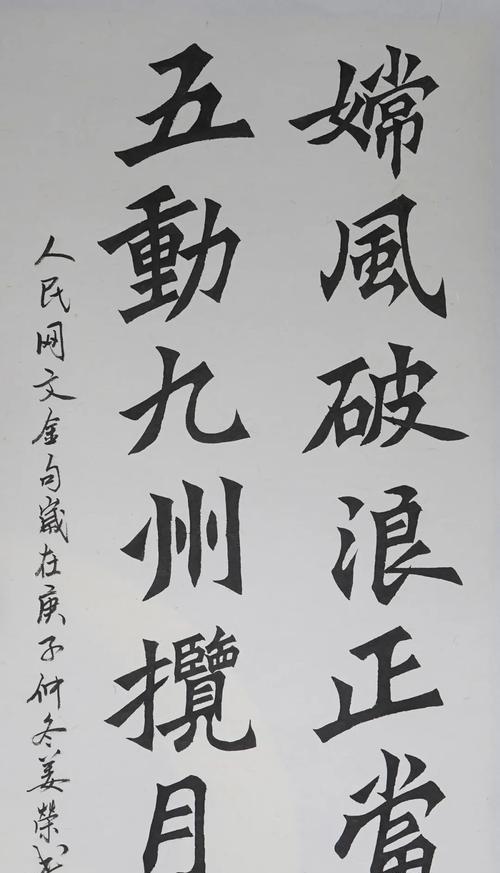 嫦風破浪正當
五動九州攬月
人民网文金句嵗在庚子仲冬姜榮书